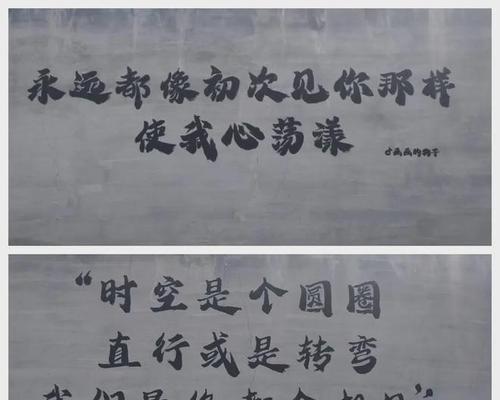 永远都像初次见你那样
使我心荡漾
“时空是个圆圈
直行或是转弯
我们最终都会相见”